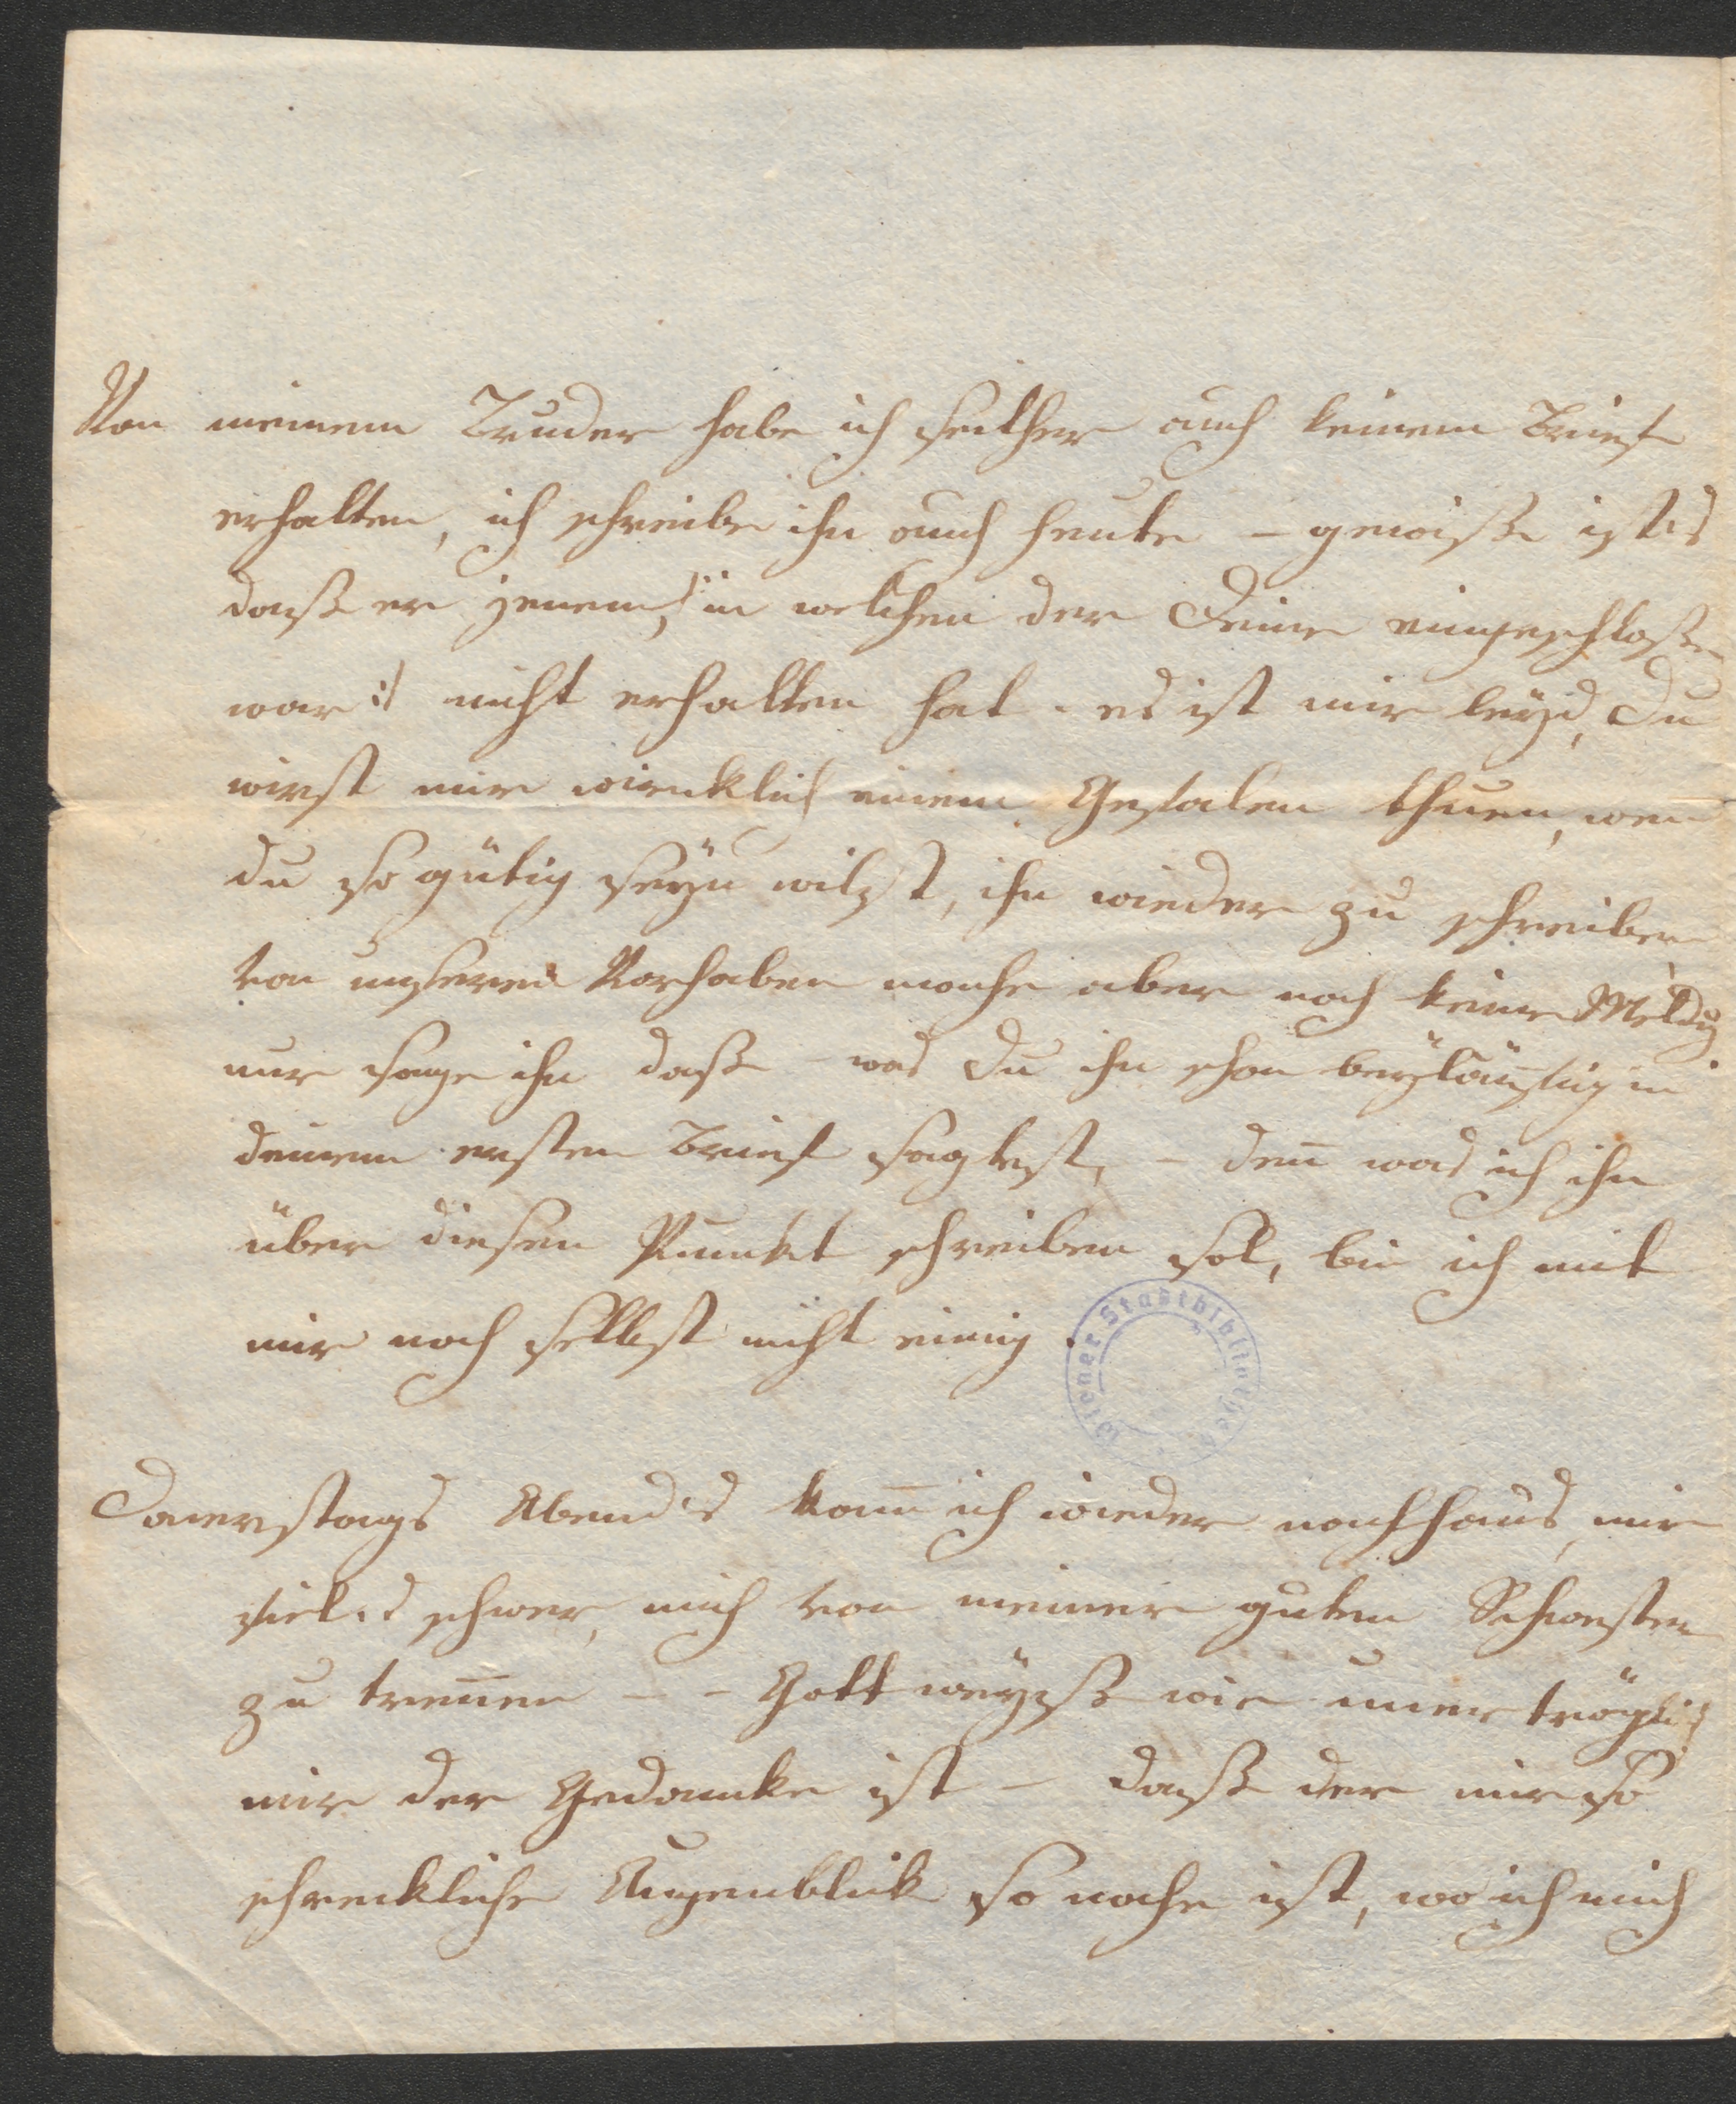 Von meinem Bruder habe ich seither auch keinem Brief
erhalten, ich schreibe ihn auch heute – gewiße ist's
daß er jenem, /: in welchen der Deine eingeschloßen
war :/ nicht erhalten hat. es ist mir leÿd, Du
wirst mir wirncklich einem Gefalen thuen, wen
du so gütig seÿn wilst, ihn wieder zu schreiben,
von unserem Vorhaben mache aber noch keine Meldung
nur sage ihn daß – was Du ihn schon beÿläufig in
deinem ersten Brief sagtest, – deñ was ich ihn
über diesen Punckt schreiben sol, bin ich mit
mir noch selbst nicht einig.
Wiener Stadtbibliothek
Donerstags Abend's kam̄ ich wieder nachhaus, mir
fiel's schwer, mich von meiner guten Schwester
zu treñen – – Gott weÿß wie unerträglich
mir der Gedancke ist – daß der mir so
schreckliche Augenblick so nahe ist, wo ich mich